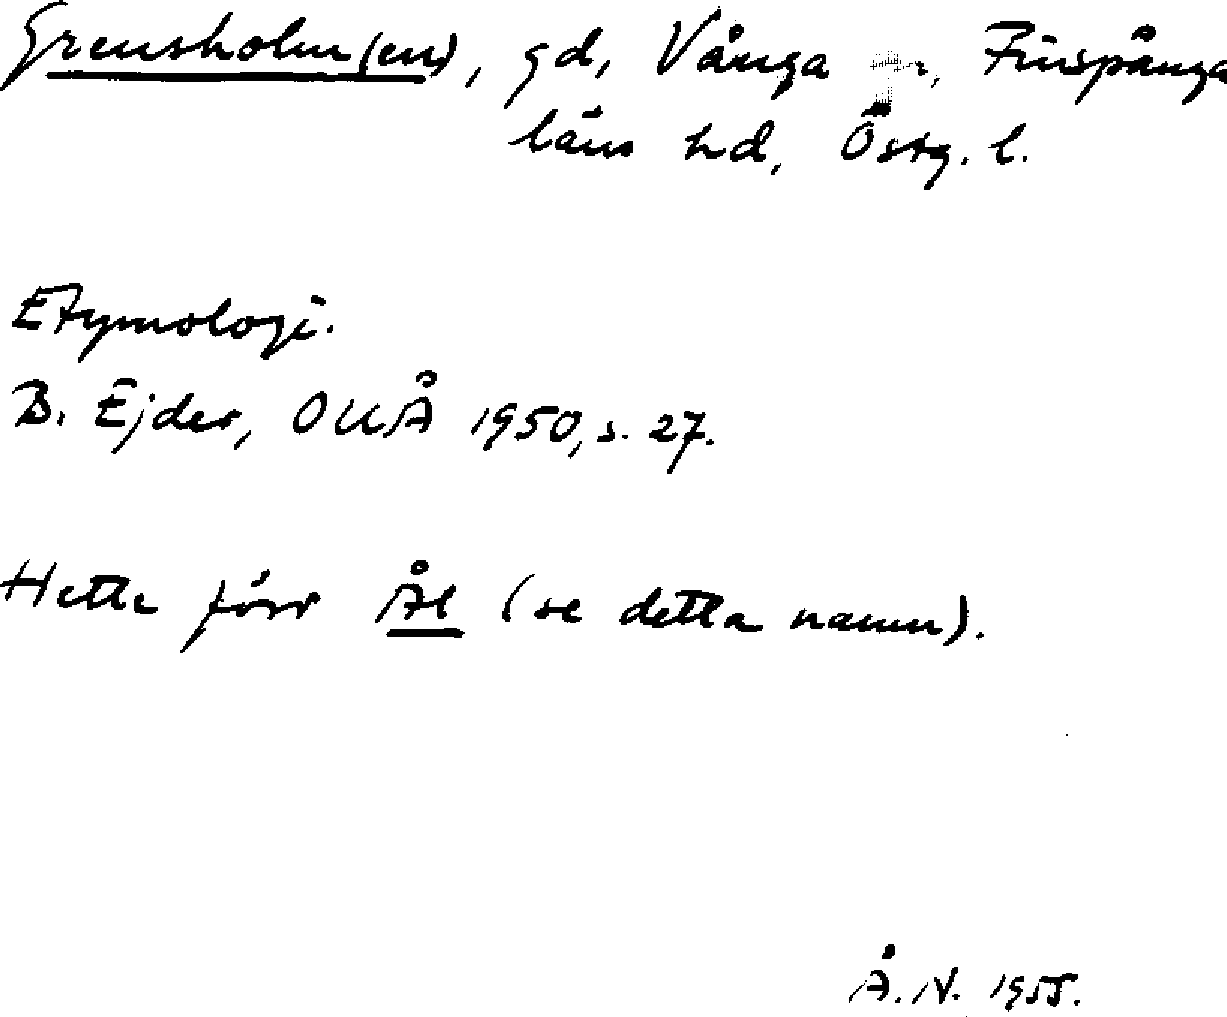 Grensholm(en), gd, Vånga sn, Finspånga
läns hd, Östg. l.
Etymologi.
B. Ejder, OUÅ 1950, s. 27.
Hette förr Ål (se detta namn).
Å. N. 1955.